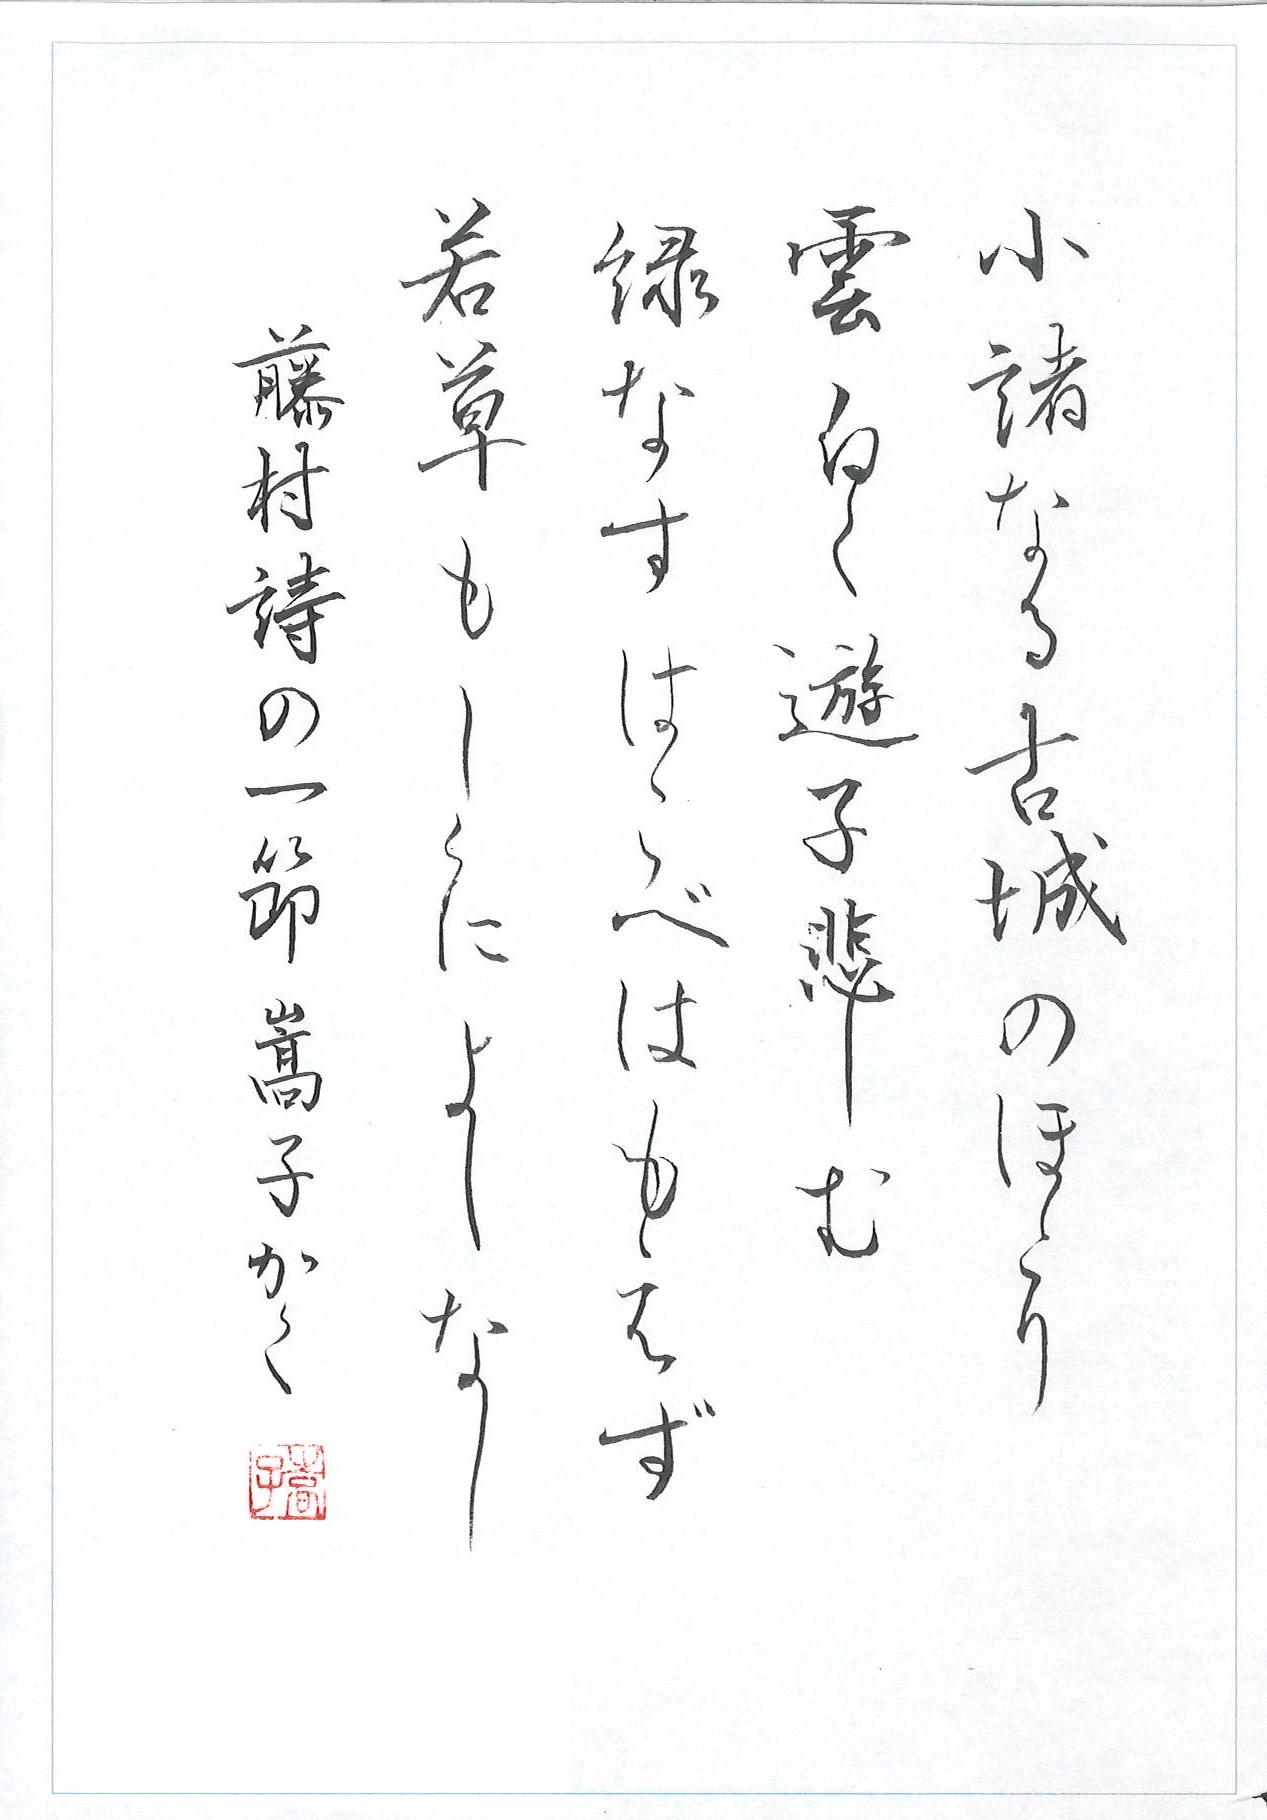 小諸なる古城のほとり
雲白く遊子悲しむ
緑なすはこべはもえず
若草もしくによしなし
藤村詩の一節 嵩子かく
嵩子